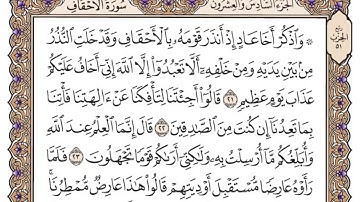 الجزء السادس والعشرون سورة الأحقاف
ربع الحزب ٥١
۞ وَٱذْكُرْ أَخَا عَادٍ إِذْ أَنذَرَ قَوْمَهُۥ بِٱلْأَحْقَافِ وَقَدْ خَلَتِ ٱلنُّذُرُ
مِنۢ بَيْنِ يَدَيْهِ وَمِنْ خَلْفِهِۦٓ أَلَّا تَعْبُدُوٓا۟ إِلَّا ٱللَّهَ إِنِّىٓ أَخَافُ عَلَيْكُمْ
عَذَابَ يَوْمٍ عَظِيمٍ ٢١ قَالُوٓا۟ أَجِئْتَنَا لِتَأْفِكَنَا عَنْ ءَالِهَتِنَا فَأْتِنَا
بِمَا تَعِدُنَآ إِن كُنتَ مِنَ ٱلصَّـٰدِقِينَ ٢٢ قَالَ إِنَّمَا ٱلْعِلْمُ عِندَ ٱللَّهِ
وَأُبَلِّغُكُم مَّآ أُرْسِلْتُ بِهِۦ وَلَـٰكِنِّىٓ أَرَىٰكُمْ قَوْمًا تَجْهَلُونَ ٢٣ فَلَمَّا
رَأَوْهُ عَارِضًا مُّسْتَقْبِلَ أَوْدِيَتِهِمْ قَالُوا۟ هَـٰذَا عَارِضٌ مُّمْطِرُنَا ۚ